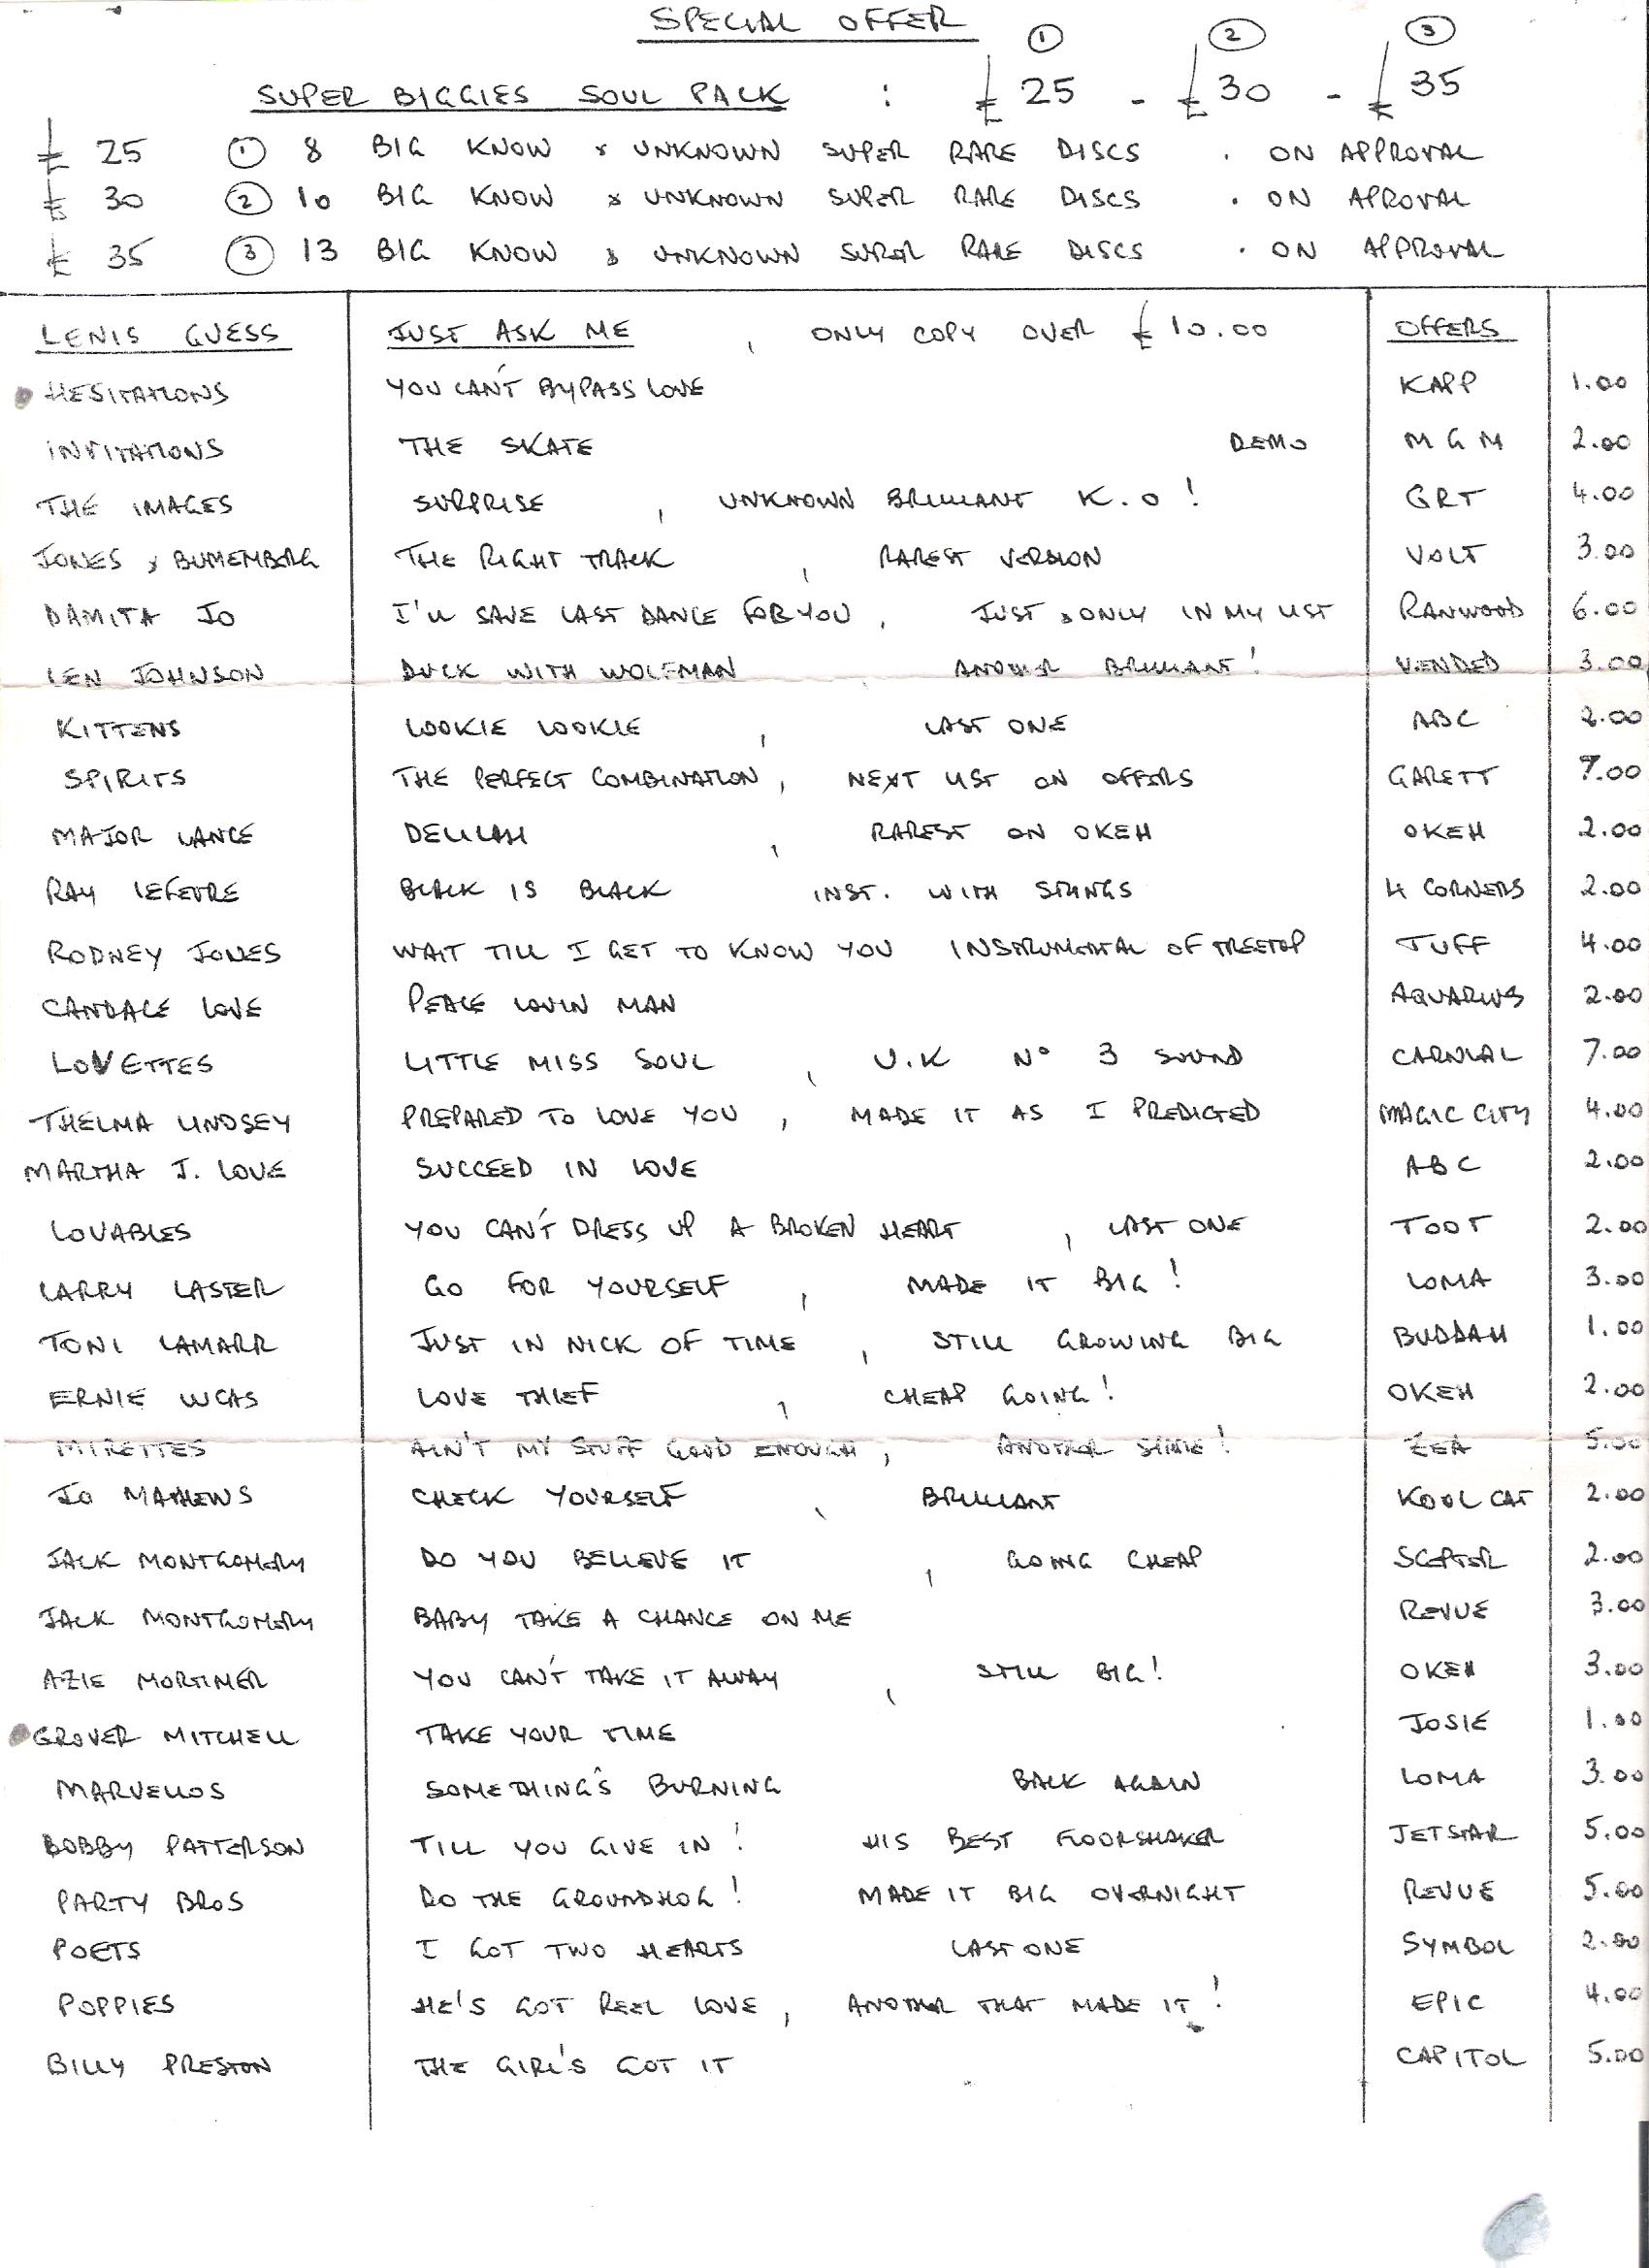 SPECIAL OFFER
① ② ③
SUPER BIGGIES SOUL PACK : £ 25 - £ 30 - £ 35
£ 25 ① 8 BIG KNOW & UNKNOWN SUPER RARE DISCS . ON APPROVAL
£ 30 ② 10 BIG KNOW & UNKNOWN SUPER RARE DISCS . ON APROVAL
£ 35 ③ 13 BIG KNOW & UNKNOWN SUPER RARE DISCS . ON APPROVAL
LENIS GUESS JUST ASK ME , ONLY COPY OVER £ 10.00 OFFERS
HESITATIONS YOU CAN'T BYPASS LOVE KAPP 1.00
INVITATIONS THE SKATE DEMO MGM 2.00
THE IMAGES SURPRISE , UNKNOWN BRILLIANT K.O! GRT 4.00
JONES & BLUMEMBERG THE RIGHT TRACK , RAREST VERSION VOLT 3.00
DAMITA JO I'LL SAVE LAST DANCE FOR YOU , JUST & ONLY IN MY LIST RANWOOD 6.00
LEN JOHNSON DUCK WITH WOLFMAN ANOTHER BRILLIANT! VENDED 3.00
KITTENS LOOKIE LOOKIE , LAST ONE ABC 2.00
SPIRITS THE PERFECT COMBINATION , NEXT LIST ON OFFERS GARETT 7.00
MAJOR LANCE DELILAH , RAREST ON OKEH OKEH 2.00
RAY LEFEVRE BLACK IS BLACK INST. WITH STRINGS 4 CORNERS 2.00
RODNEY JONES WAIT TILL I GET TO KNOW YOU INSTRUMENTAL OF TREETOP TUFF 4.00
CANDACE LOVE PEACE LOVIN MAN AQUARIUS 2.00
LOVETTES LITTLE MISS SOUL , U.K Nº 3 SOUND CARNIVAL 7.00
THELMA LINDSEY PREPARED TO LOVE YOU , MADE IT AS I PREDICTED MAGIC CITY 4.00
MARTHA J. LOVE SUCCEED IN LOVE ABC 2.00
LOVABLES YOU CAN'T DRESS UP A BROKEN HEART , LAST ONE TOOT 2.00
LARRY LASTER GO FOR YOURSELF , MADE IT BIG! LOMA 3.00
TONI LAMARR JUST IN NICK OF TIME , STILL GROWING BIG BUDDAH 1.00
ERNIE LUCAS LOVE THIEF , CHEAP GOING! OKEH 2.00
MIRETTES AIN'T MY STUFF GOOD ENOUGH , ANOTHER ! ZEA 5.00
JO MATHEWS CHECK YOURSELF , BRILLIANT KOOL CAT 2.00
JACK MONTGOMERY DO YOU BELIEVE IT , GOING CHEAP SCEPTER 2.00
JACK MONTGOMERY BABY TAKE A CHANCE ON ME REVUE 3.00
AZIE MORTIMER YOU CAN'T TAKE IT AWAY , STILL BIG! OKEH 3.00
GROVER MITCHELL TAKE YOUR TIME JOSIE 1.00
MARVELLOS SOMETHING'S BURNING BACK AGAIN LOMA 3.00
BOBBY PATTERSON TILL YOU GIVE IN! HIS BEST FLOORSHAKER JETSTAR 5.00
PARTY BROS DO THE GROUNDHOG! MADE IT BIG OVERNIGHT REVUE 5.00
POETS I GOT TWO HEARTS LAST ONE SYMBOL 2.00
POPPIES HE'S GOT REEL LOVE , ANOTHER THAT MADE IT! EPIC 4.00
BILLY PRESTON THE GIRL'S GOT IT CAPITOL 5.00